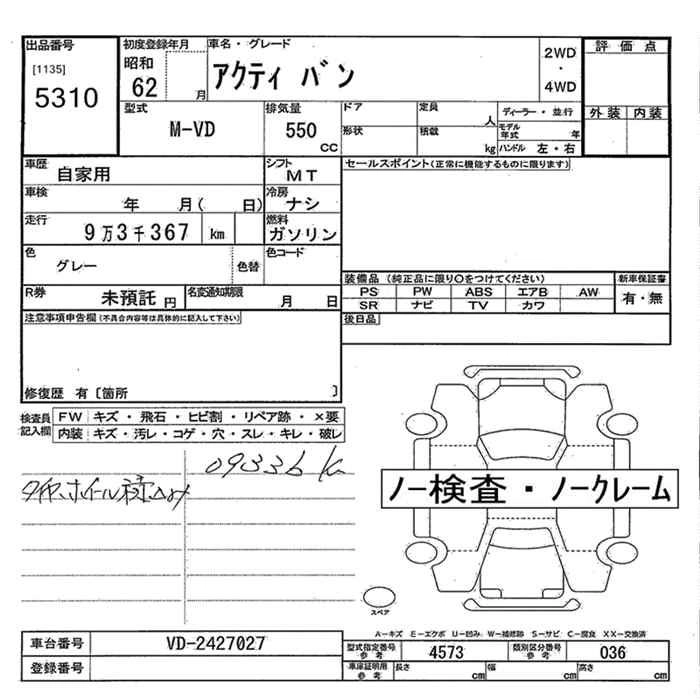 出品番号 初度登録年月 車名・グレード 2WD 評価点
[1135] 昭和 アクティ バン ・
5310 62 月 4WD
型式 排気量 ドア 定員 人 ディーラー・並行 外装 内装
M-VD 550 cc 形状 積載 kg モデル年式 年
ハンドル 左・右
車歴 自家用 シフト MT セールスポイント(正常に機能するものに限ります)
車検 年 月( 日) 冷房 ナシ
走行 9万3千367 km 燃料 ガソリン
色 グレー 色替 色コード
装備品(純正品に限り○をつけてください) 新車保証書
R券 未預託 円 名変通知期限 月 日 PS PW ABS エアB AW 有・無
SR ナビ TV カワ
注意事項申告欄(不具合内容等は具体的に記入して下さい) 後日品
修復歴 有〔箇所 〕
検査員記入欄 FW キズ・飛石・ヒビ割・リペア跡・×要
内装 キズ・汚レ・コゲ・穴・スレ・キレ・破レ
09336 K
ノー検査・ノークレーム
スペア
A-キズ E-エクボ U-凹み W-補修跡 S-サビ C-腐食 XX-交換済
車台番号 VD-2427027 型式指定番号 参考 4573 類別区分番号 参考 036
登録番号 車庫証明用 参考 長さ cm 幅 cm 高さ cm